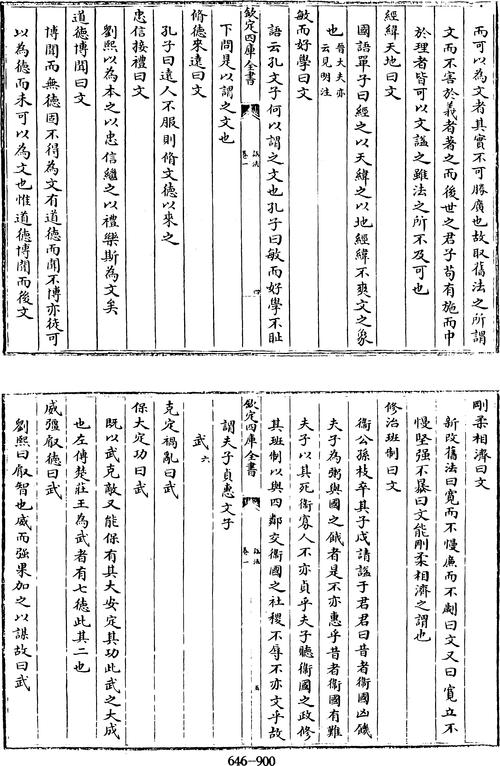 而可以為文者其實不可勝廣也故取舊法之所謂
文而不害於義者著之而後世之君子苟有施而中
於理者皆可以文謚之雖法之所不及可也
經緯天地曰文
國語單子曰經之以天緯之以地經緯不爽文之象
也晉大夫亦云見明注
敏而好學曰文
語云孔文子何以謂之文也孔子曰敏而好學不恥
欽定四庫全書
諡法
卷一
四
下問是以謂之文也
脩德來遠曰文
孔子曰遠人不服則脩文德以來之
忠信接禮曰文
劉熙以為本之以忠信繼之以禮樂斯為文矣
道德博聞曰文
博聞而無德固不得為文有道德而聞不博亦從可
以為德而未可以為文也惟道德博聞而後文
剛柔相濟曰文
新改舊法曰寛而不慢廉而不劌曰文又曰寛立不
慢堅强不暴曰文能剛柔相濟之謂也
修治班制曰文
衛公孫枝卒其子戍請謚于君君曰昔者衛國凶饑
夫子為粥與國之餓者是不亦惠乎昔者衛國有難
夫子以其死衛寡人不亦貞乎夫子聽衛國之政修
其班制以與四鄰交衛國之社稷不辱不亦文乎故
欽定四庫全書
諡法
卷一
五
謂夫子貞惠文子
武六
克定禍亂曰武
保大定功曰武
既以武克敵又能保有其大安定其功此武之大成
也左傳楚莊王為武者有七德此其二也
威彊叡德曰武
劉熙曰叡智也威而強果加之以謀故曰武
646-900